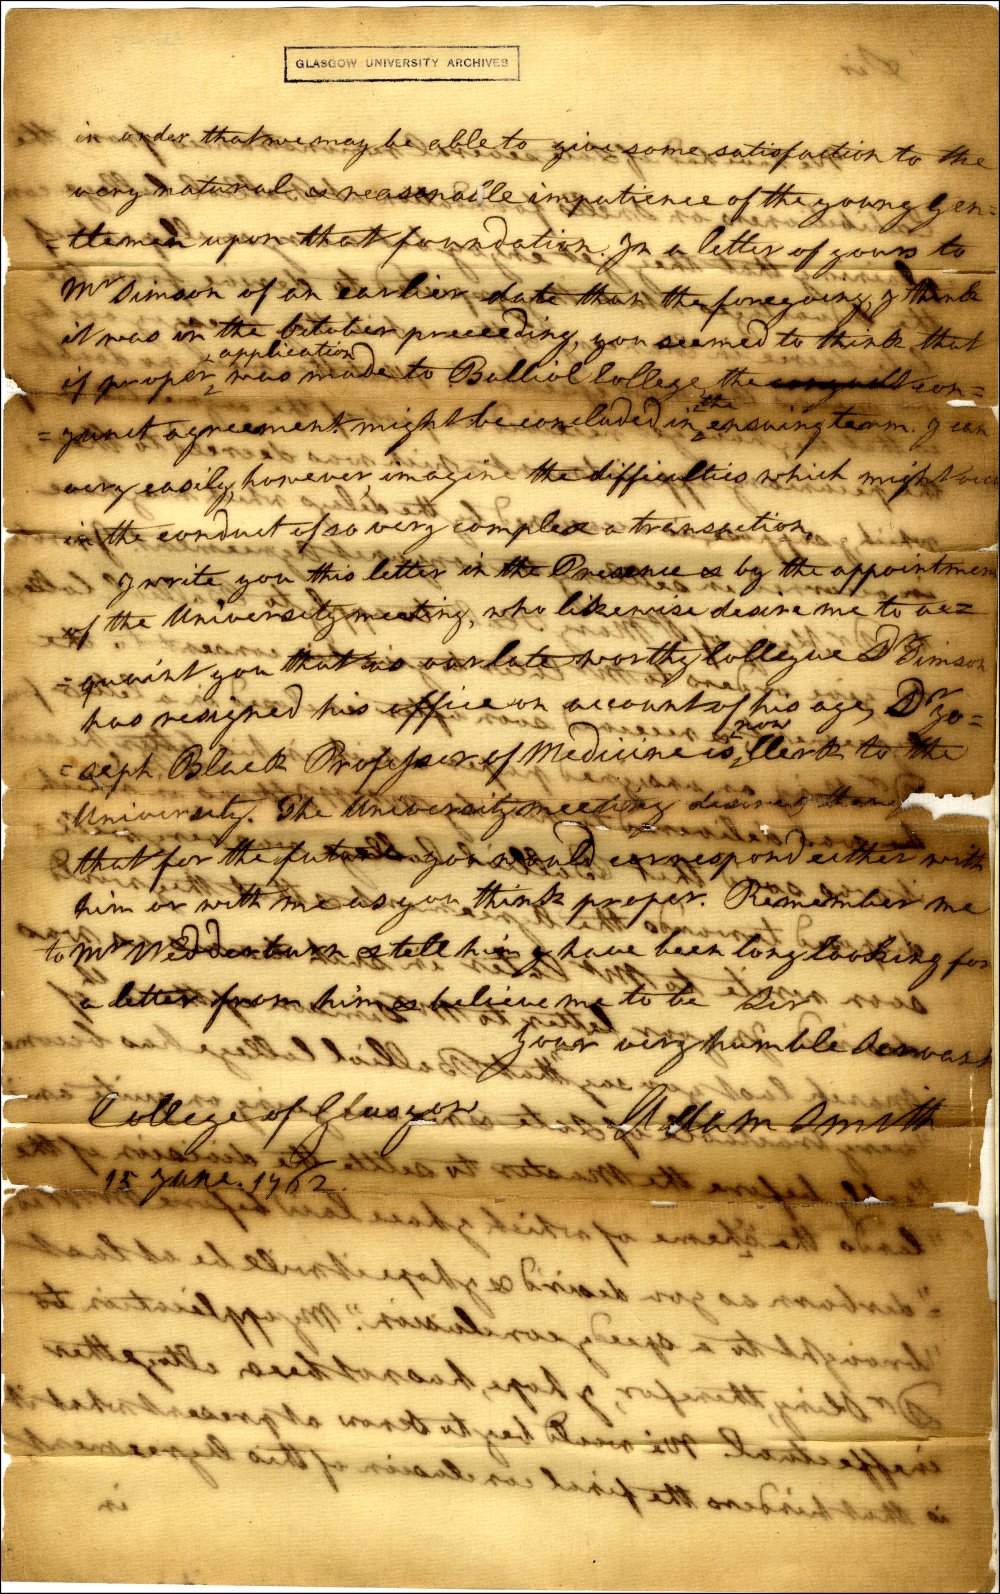 GLASGOW UNIVERSITY ARCHIVES
in order that we may be able to give some satisfaction to the
very natural & reasonable impatience of the young Gen=
=tlemen upon that foundation. In a letter of yours to
Mr Simson of an earlier date than the foregoing, I think
it was in the October preceeding, you seemed to think that
application
if proper was made to Balliol College the con=
the
=junct agreement might be concluded in ensuing term. I can
very easily, however, imagine the difficulties which might
in the conduct of so very complex a transaction.
I write you this letter in the Presence & by the appointment
of the University meeting, who likewise desire me to ac=
=quaint you that as our late worthy Collegue Dr Simson
has resigned his office on account of his age, Dr Jo=
now
=seph Black Professor of Medicine is Clerk to the
University. The University meeting desire,
that for the future you would correspond either with
him or with me as you think proper. Remember me
to Mr Wedderburn & tell him I have been long looking for
a letter from him & believe me to be Sir
Your very humble Servant
College of Glasgow Adam Smith
15 June. 1762.